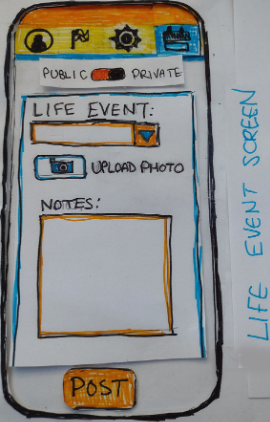 PUBLIC PRIVATE
LIFE EVENT:
UPLOAD PHOTO
NOTES:
POST
LIFE EVENT SCREEN